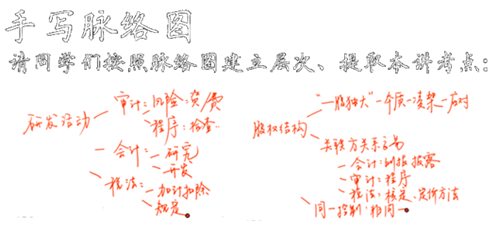 手写脉络图
请同学们按照脉络图建立层次、提取本讲考点：
研发活动
审计：风险：资/费
程序：检查
会计：研究
开发
税法：加计扣除
规定
股权结构
"一股独大"
关联方关系交易
会计：列报披露
审计：程序
税法：核定、定价方法
同一控制：相同